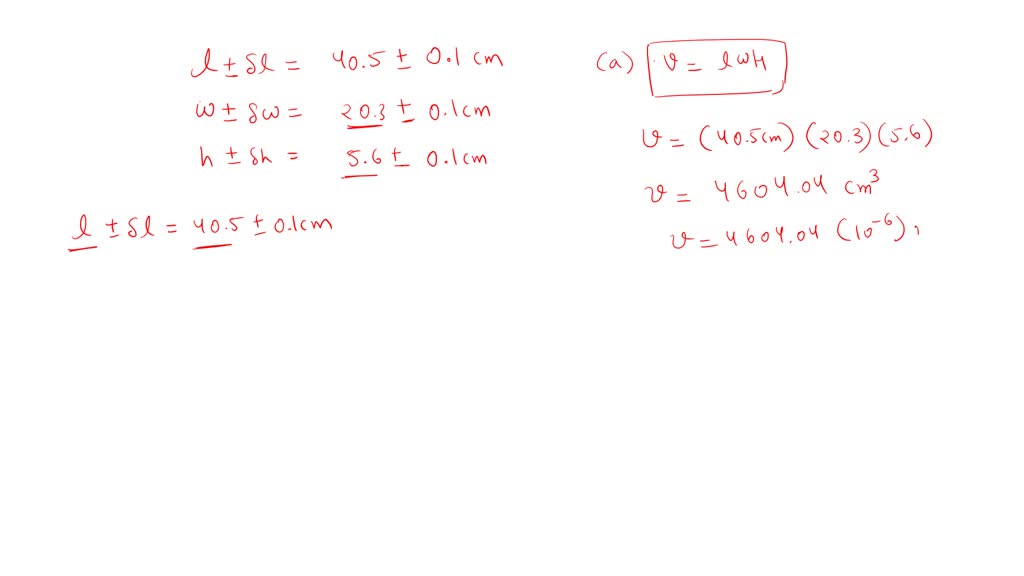 l ± δl = 40.5 ± 0.1 cm
w ± δw = 20.3 ± 0.1cm
h ± δh = 5.6 ± 0.1cm
l ± δl = 40.5 ± 0.1cm
(a) v = lwh
v = (40.5cm) (20.3) (5.6)
v = 4604.04 cm³
v = 4604.04 (10⁻⁶) ,